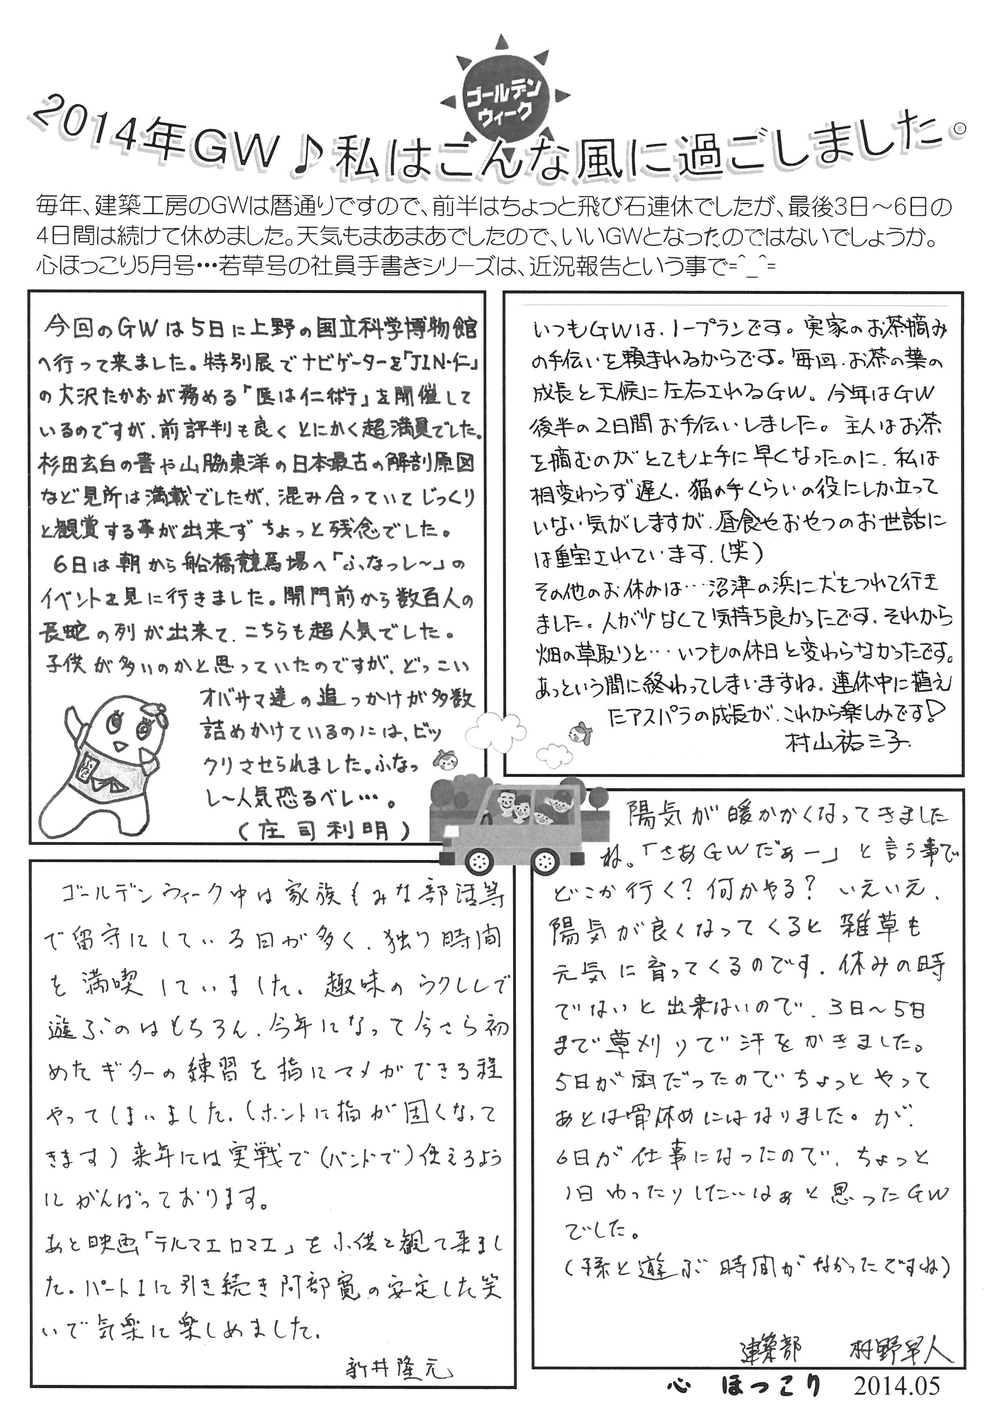 ゴールデン
ウィーク
2014年GW♪私はこんな風に過ごしました。
毎年、建築工房のGWは暦通りですので、前半はちょっと飛び石連休でしたが、最後3日～6日の
4日間は続けて休めました。天気もまあまあでしたので、いいGWとなったのではないでしょうか。
心ほっこり5月号…若草号の社員手書きシリーズは、近況報告という事で=^_^=
今回のGWは5日に上野の国立科学博物館
へ行って来ました。特別展でナビゲーターを「JIN・仁」
の大沢たかおが務める「医は仁術行」を開催して
いるのですが、前評判も良くとにかく超満員でした。
杉田玄白の書や山脇東洋の日本最古の解剖原図
など見所は満載でしたが、混み合っていてじっくり
と観賞する事が出来ずちょっと残念でした。
6日は朝から船橋競馬場へ「ふなっし〜」の
イベントを見に行きました。開門前から数百人の
長蛇の列が出来て、こちらも超人気でした。
子供が多いのかと思っていたのですが、どっこい
オバサマ達の追っかけが多数
詰めかけているのには、ビッ
クリさせられました。ふなっ
し〜人気恐るベし…。
(庄司利明)
いつもGWは、1ープランです。実家のお茶摘み
の手伝いを頼まれるからです。毎回、お茶の葉の
成長と天候に左右されるGW。今年はGW
後半の2日間お手伝いしました。主人はお茶
を摘むのがとても上手に早くなったのに、私は
相変わらず遅く、猫の手くらいの役にしか立って
いない気がしますが、昼食やおやつのお世話に
は重宝されています。(笑)
その他のお休みは…沼津の浜に犬をつれて行き
ました。人が少なくて気持ち良かったです。それから
畑の草取りと…いつもの休日と変わらなかったです。
あっという間に終わってしまいますね。連休中に植え
たアスパラの成長が、これから楽しみです!
村山祐三子
ゴールデンウィーク中は家族もみな部活等
で留守にしている日が多く、独り時間
を満喫していました。趣味のウクレレで
遊ぶのはもちろん、今年になって今さら初
めたギターの練習を指にマメができる程
やってしまいました。(ホントに指が固くなって
きます)来年には実戦で(バンドで)使えるよう
にがんばっております。
あと映画「テルマエロマエ」を子供と観て来まし
た。パート1に引き続き阿部寛の安定した笑
いで気楽に楽しめました。
新井隆元
陽気が暖かかくなってきました
ね。「さあGWだぁー」と言う事で
どこか行く?何かやる?いえいえ、
陽気が良くなってくると雑草も
元気に育ってくるのです。休みの時
でないと出来ないので、3日〜5日
まで草刈りで汗をかきました。
5日が雨だったのでちょっとやって
あとは骨休めにはなりました。が、
6日が仕事になったので、ちょっと
1日ゆったりしたいなぁと思ったGW
でした。
(孫と遊ぶ時間がなかったですね)
建築部 村野早人
心 ほっこり 2014.05